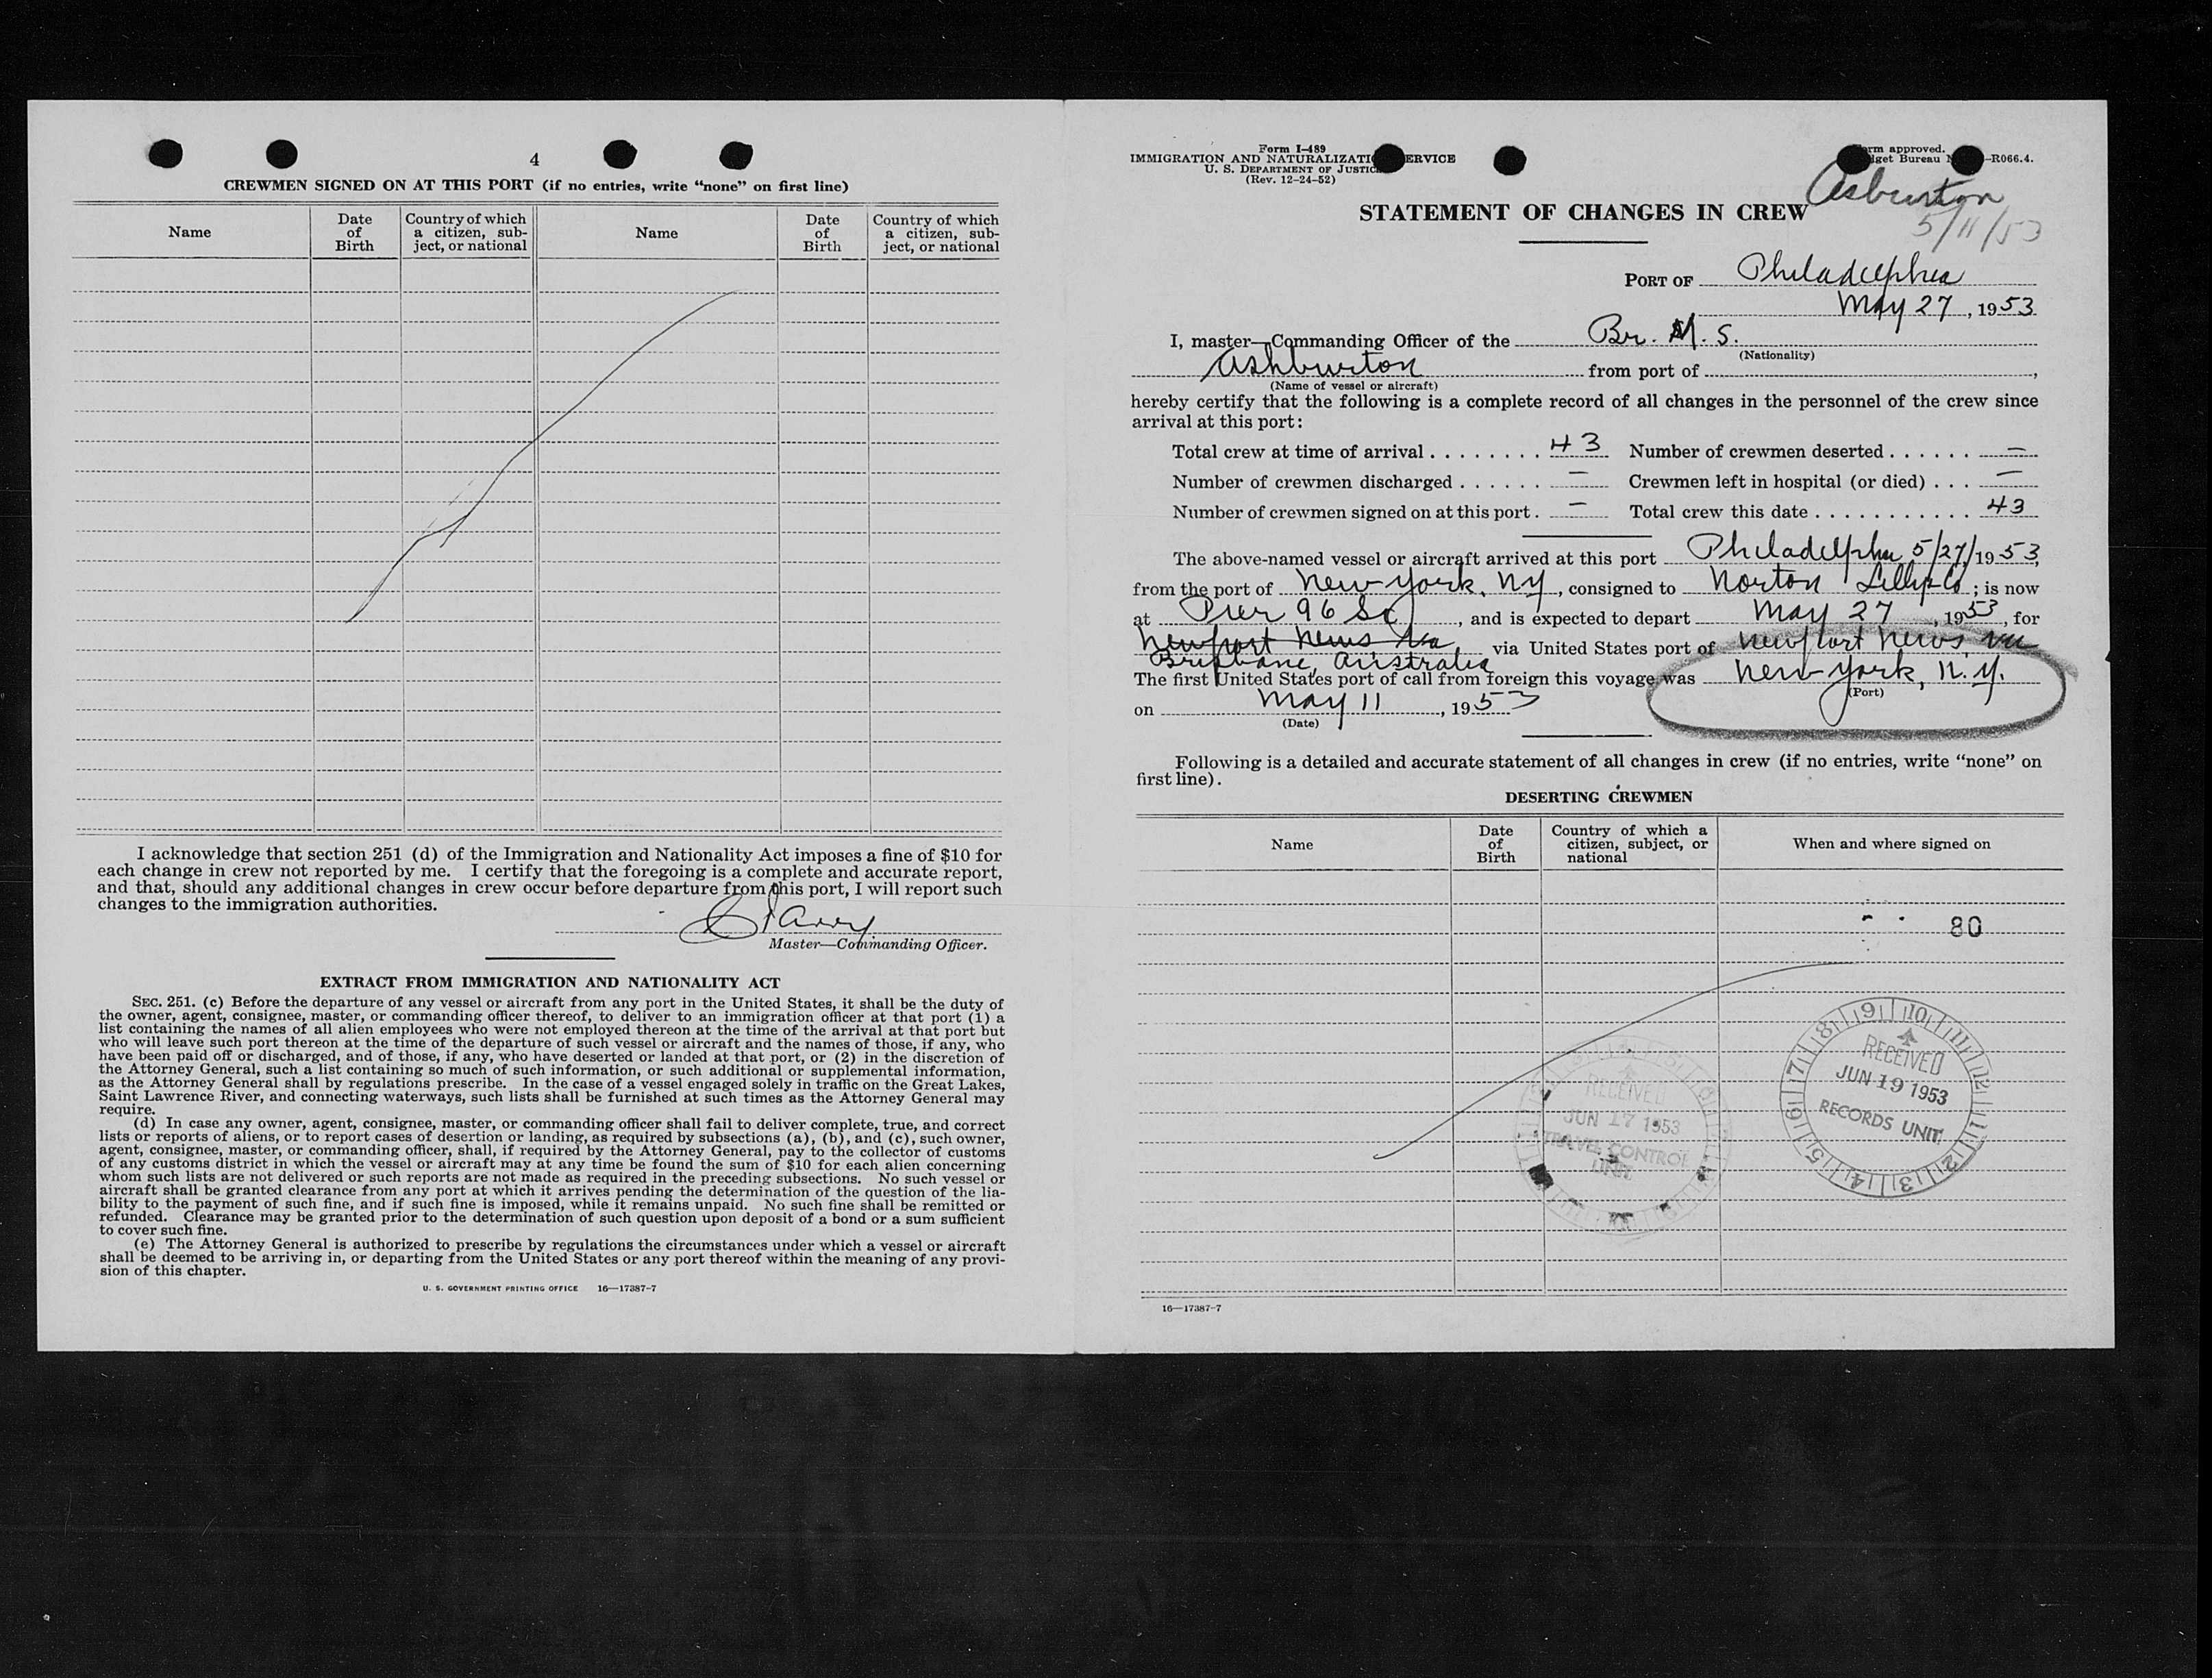 4
CREWMEN SIGNED ON AT THIS PORT (if no entries, write “none” on first line)
Name
Date of Birth
Country of which a citizen, subject, or national
Name
Date of Birth
Country of which a citizen, subject, or national
I acknowledge that section 251 (d) of the Immigration and Nationality Act imposes a fine of $10 for
each change in crew not reported by me. I certify that the foregoing is a complete and accurate report,
and that, should any additional changes in crew occur before departure from this port, I will report such
changes to the immigration authorities.
Master—Commanding Officer.
EXTRACT FROM IMMIGRATION AND NATIONALITY ACT
SEC. 251. (c) Before the departure of any vessel or aircraft from any port in the United States, it shall be the duty of
the owner, agent, consignee, master, or commanding officer thereof, to deliver to an immigration officer at that port (1) a
list containing the names of all alien employees who were not employed thereon at the time of the arrival at that port but
who will leave such port thereon at the time of the departure of such vessel or aircraft and the names of those, if any, who
have been paid off or discharged, and of those, if any, who have deserted or landed at that port, or (2) in the discretion of
the Attorney General, such a list containing so much of such information, or such additional or supplemental information,
as the Attorney General shall by regulations prescribe. In the case of a vessel engaged solely in traffic on the Great Lakes,
Saint Lawrence River, and connecting waterways, such lists shall be furnished at such times as the Attorney General may
require.
(d) In case any owner, agent, consignee, master, or commanding officer shall fail to deliver complete, true, and correct
lists or reports of aliens, or to report cases of desertion or landing, as required by subsections (a), (b), and (c), such owner,
agent, consignee, master, or commanding officer, shall, if required by the Attorney General, pay to the collector of customs
of any customs district in which the vessel or aircraft may at any time be found the sum of $10 for each alien concerning
whom such lists are not delivered or such reports are not made as required in the preceding subsections. No such vessel or
aircraft shall be granted clearance from any port at which it arrives pending the determination of the question of the lia-
bility to the payment of such fine, and if such fine is imposed, while it remains unpaid. No such fine shall be remitted or
refunded. Clearance may be granted prior to the determination of such question upon deposit of a bond or a sum sufficient
to cover such fine.
(e) The Attorney General is authorized to prescribe by regulations the circumstances under which a vessel or aircraft
shall be deemed to be arriving in, or departing from the United States or any port thereof within the meaning of any provi-
sion of this chapter.
U. S. GOVERNMENT PRINTING OFFICE 16—17387-7
Form I-489
IMMIGRATION AND NATURALIZATI ERVICE
U. S. DEPARTMENT OF JUSTIC
(Rev. 12-24-52)
rm approved.
get Bureau N -R066.4.
Asburton
5/11/53
STATEMENT OF CHANGES IN CREW
PORT OF Philadelphia
May 27, 1953
I, master—Commanding Officer of the Br. M. S.
(Nationality)
Ashburton from port of ,
(Name of vessel or aircraft)
hereby certify that the following is a complete record of all changes in the personnel of the crew since
arrival at this port:
Total crew at time of arrival 43 Number of crewmen deserted —
Number of crewmen discharged — Crewmen left in hospital (or died) —
Number of crewmen signed on at this port — Total crew this date 43
The above-named vessel or aircraft arrived at this port Philadelphia 5/27/1953,
from the port of New York, NY, consigned to Norton Lilly & Co; is now
at Pier 96 So, and is expected to depart May 27, 1953, for
Newport News Va via United States port of Newport News, Va
Brisbane, Australia
The first United States port of call from foreign this voyage was New York, N.Y.
(Port)
on May 11, 1953
(Date)
Following is a detailed and accurate statement of all changes in crew (if no entries, write “none” on
first line).
DESERTING CREWMEN
Name
Date of Birth
Country of which a citizen, subject, or national
When and where signed on
80
RECEIVED
JUN 17 1953
TRAVEL CONTROL
UNIT
9 10 11 12 1 2 3 4 5 6 7 8
RECEIVED
JUN 19 1953
RECORDS UNIT
16—17387-7